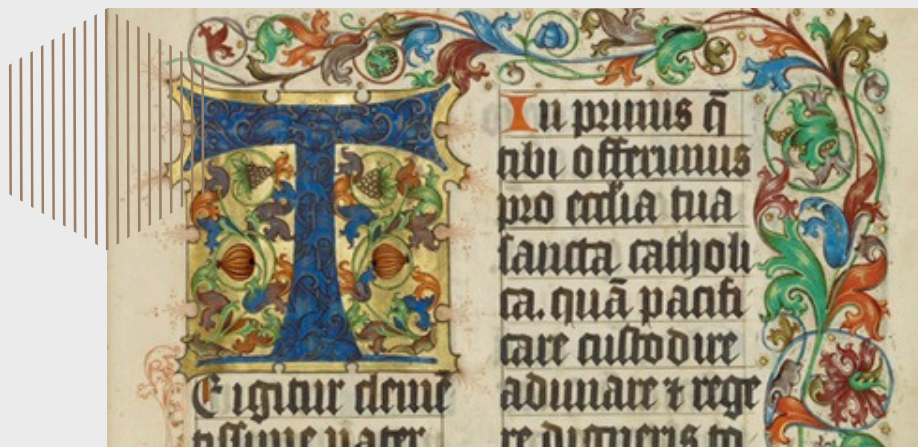 T
E igitur clemē
tissime pater
In primis q̄
tibi offerimus
pro ecclīa tua
sancta catholi
ca. quā pacifi
care custodire
adunare ⁊ rege
re digneris to